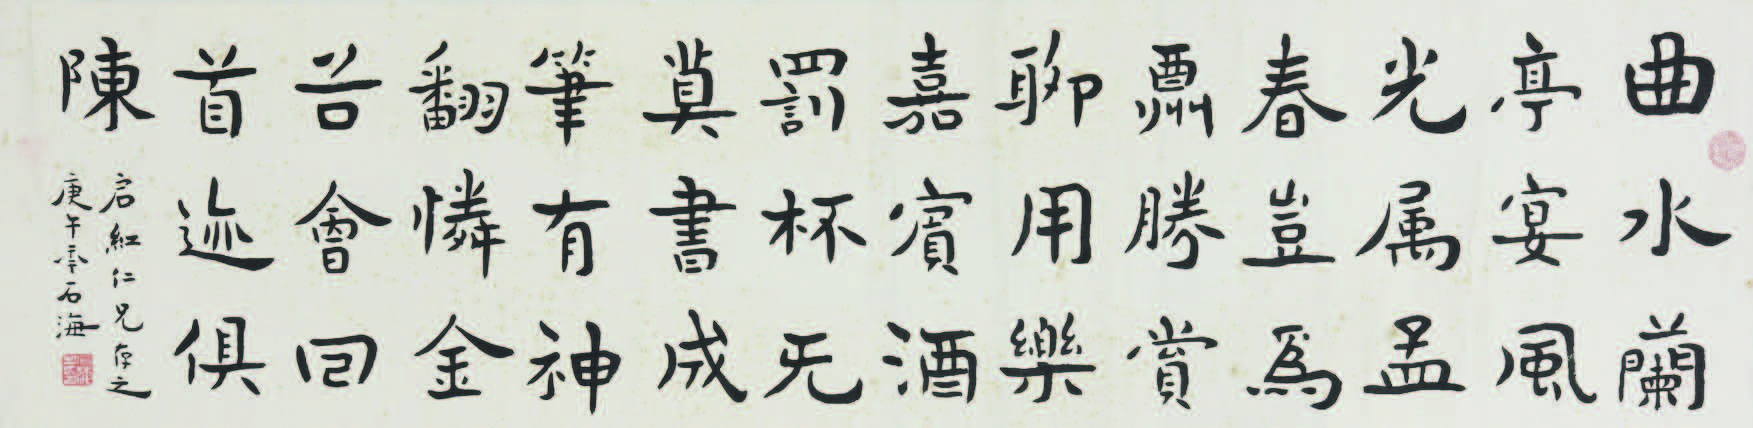 曲水蘭
亭宴風
光属孟
春豈為
勝賞
聊用樂
嘉賓酒
罰杯无
算書成
筆有神
翻憐金
谷會回
首迹俱
陳
启紅仁兄存之
庚午石海